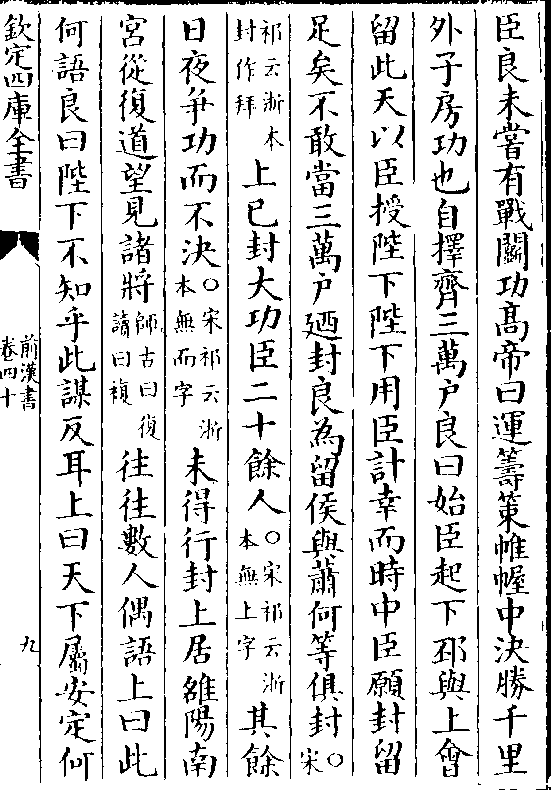 臣良未嘗有戰鬬功髙帝曰運籌䇿帷幄中决勝千里
外子房功也自擇齊三萬户良曰始臣起下邳與上㑹
留此天以臣授陛下陛下用臣計幸而時中臣願封留
足矣不敢當三萬户廼封良為留侯與蕭何等俱封○宋
祁云浙本封作拜上已封大功臣二十餘人○宋祁云浙本無上字其餘
日夜爭功而不決○宋祁云浙本無而字未得行封上居雒陽南
宮從復道望見諸將師古曰復讀曰複往往數人偶語上曰此
何語良曰陛下不知乎此謀反耳上曰天下屬安定何
欽定四庫全書
前漢書
卷四十
九